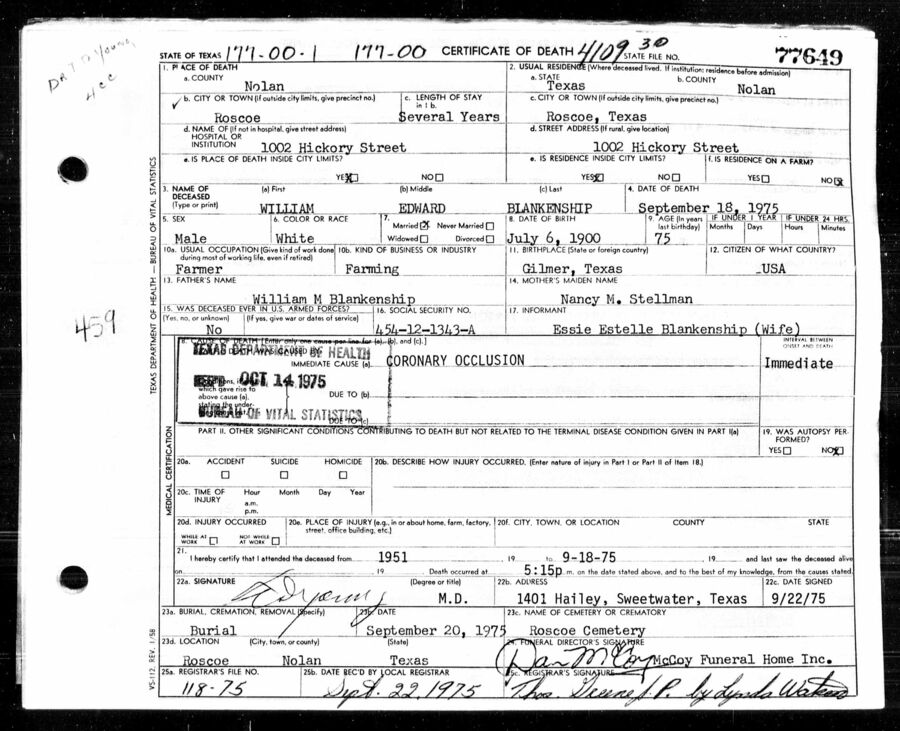 STATE OF TEXAS 177-00-1 177-00 CERTIFICATE OF DEATH 4109 30 STATE FILE NO. 77649
1. PLACE OF DEATH
2. USUAL RESIDENCE (Where deceased lived. If institution: residence before admission)
a. COUNTY
a. STATE
b. COUNTY
Nolan
Texas
Nolan
✓ b. CITY OR TOWN (If outside city limits, give precinct no.)
c. LENGTH OF STAY in 1 b.
c. CITY OR TOWN (If outside city limits, give precinct no.)
Roscoe
Several Years
Roscoe, Texas
d. NAME OF (If not in hospital, give street address)
HOSPITAL OR
INSTITUTION
1002 Hickory Street
d. STREET ADDRESS (If rural, give location)
1002 Hickory Street
e. IS PLACE OF DEATH INSIDE CITY LIMITS?
e. IS RESIDENCE INSIDE CITY LIMITS?
f. IS RESIDENCE ON A FARM?
YES X NO
YES X NO
YES NO X
3. NAME OF DECEASED (Type or print)
(a) First
(b) Middle
(c) Last
4. DATE OF DEATH
WILLIAM EDWARD BLANKENSHIP September 18, 1975
5. SEX
6. COLOR OR RACE
7.
Married X Never Married
Widowed Divorced
8. DATE OF BIRTH
9. AGE (In years last birthday)
IF UNDER 1 YEAR
Months Days
IF UNDER 24 HRS.
Hours Minutes
Male White July 6, 1900 75
10a. USUAL OCCUPATION (Give kind of work done during most of working life, even if retired)
10b. KIND OF BUSINESS OR INDUSTRY
11. BIRTHPLACE (State or foreign country)
12. CITIZEN OF WHAT COUNTRY?
Farmer Farming Gilmer, Texas USA
13. FATHER'S NAME
14. MOTHER'S MAIDEN NAME
William M Blankenship Nancy M. Stellman
15. WAS DECEASED EVER IN U.S. ARMED FORCES?
(Yes, no, or unknown) (If yes, give war or dates of service)
16. SOCIAL SECURITY NO.
17. INFORMANT
No 454-12-1343-A Essie Estelle Blankenship (Wife)
18. CAUSE OF DEATH [Enter only one cause per line for (a), (b), and (c).]
INTERVAL BETWEEN ONSET AND DEATH
TEXAS DEPARTMENT OF HEALTH
IMMEDIATE CAUSE (a) CORONARY OCCLUSION Immediate
OCT 14 1975
Conditions, if any, which gave rise to above cause (a), stating the under-
DUE TO (b)
BUREAU OF VITAL STATISTICS
DUE TO (c)
PART II. OTHER SIGNIFICANT CONDITIONS CONTRIBUTING TO DEATH BUT NOT RELATED TO THE TERMINAL DISEASE CONDITION GIVEN IN PART I(a)
19. WAS AUTOPSY PERFORMED?
YES NO X
20a. ACCIDENT SUICIDE HOMICIDE
20b. DESCRIBE HOW INJURY OCCURRED. (Enter nature of injury in Part I or Part II of Item 18.)
20c. TIME OF INJURY
Hour Month Day Year
a.m.
p.m.
20d. INJURY OCCURRED
WHILE AT WORK
NOT WHILE AT WORK
20e. PLACE OF INJURY (e.g., in or about home, farm, factory, street, office building, etc.)
20f. CITY, TOWN, OR LOCATION COUNTY STATE
21.
I hereby certify that I attended the deceased from 1951 19 to 9-18-75 19 and last saw the deceased alive
on 19 Death occurred at 5:15p m. on the date stated above, and to the best of my knowledge, from the causes stated.
22a. SIGNATURE (Degree or title)
22b. ADDRESS
22c. DATE SIGNED
M.D. 1401 Hailey, Sweetwater, Texas 9/22/75
23a. BURIAL, CREMATION, REMOVAL (Specify)
23b. DATE
23c. NAME OF CEMETERY OR CREMATORY
Burial September 20, 1975 Roscoe Cemetery
23d. LOCATION (City, town, or county) (State)
24. FUNERAL DIRECTOR'S SIGNATURE
Roscoe Nolan Texas Dan McCoy McCoy Funeral Home Inc.
25a. REGISTRAR'S FILE NO.
25b. DATE REC'D BY LOCAL REGISTRAR
25c. REGISTRAR'S SIGNATURE
118-75 Sept. 22, 1975 Thos. Greene J.P. by Lynda
TEXAS DEPARTMENT OF HEALTH — BUREAU OF VITAL STATISTICS
MEDICAL CERTIFICATION
VS-112, REV. 1/58
459